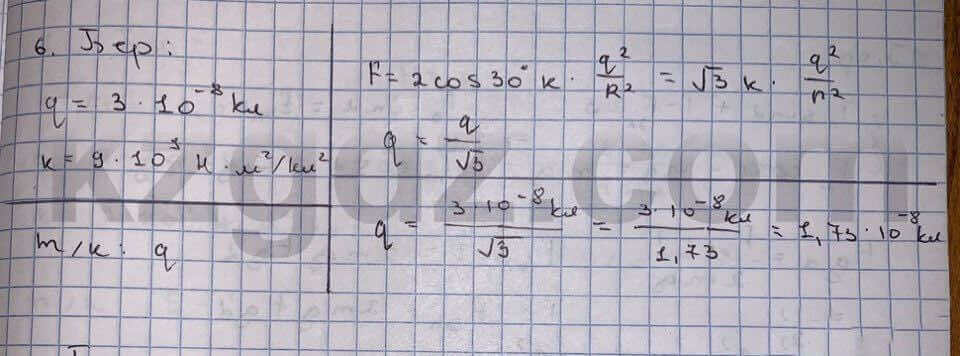 6. Бер:
q = 3 · 10⁻⁸ кл
к = 9 · 10⁹ Н · м²/кл²
т/к: q
F = 2 cos 30° к · q²/R² = √3 к · q²/r²
q = q/√3
q = 3·10⁻⁸ кл/√3 = 3·10⁻⁸ кл/1,73 = 1,73 · 10⁻⁸ кл
kzgdz.com